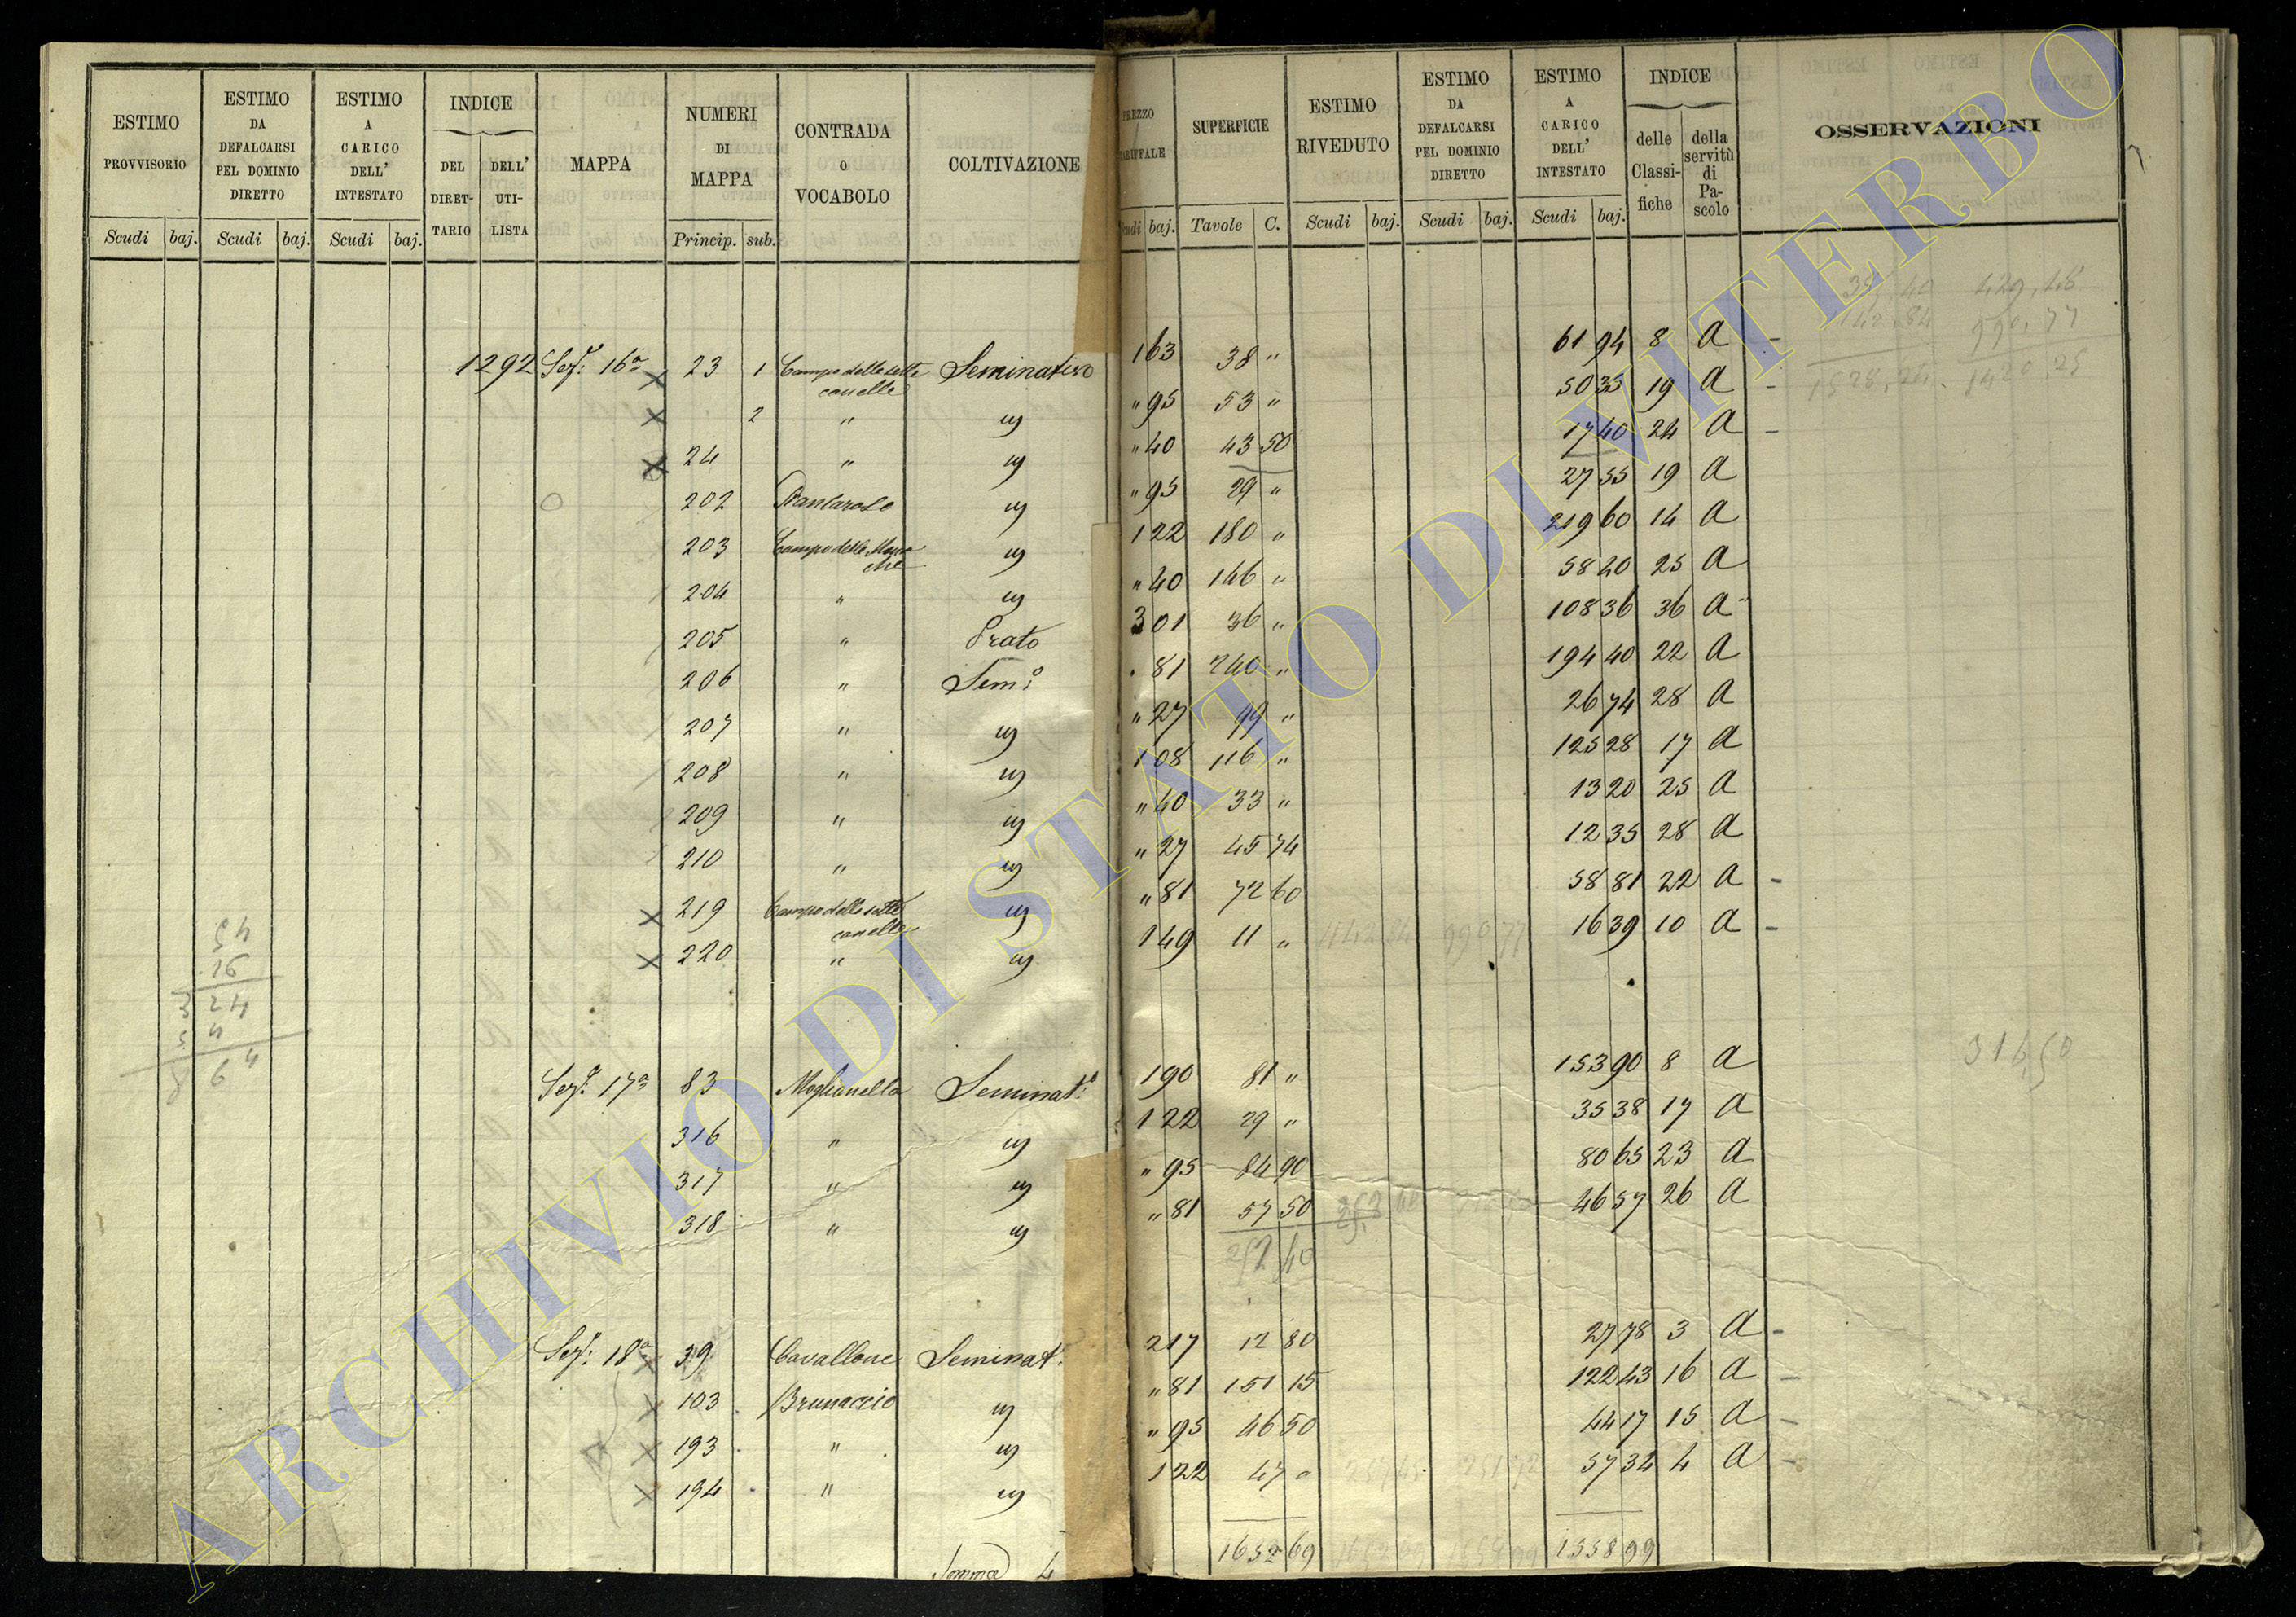 ESTIMO PROVVISORIO | ESTIMO DA DEFALCARSI PEL DOMINIO DIRETTO | ESTIMO A CARICO DELL' INTESTATO | INDICE DEL DIRET-TARIO | DELL' UTI-LISTA | MAPPA | NUMERI DI MAPPA | CONTRADA O VOCABOLO | COLTIVAZIONE | PREZZO TARIFFALE | SUPERFICIE | ESTIMO RIVEDUTO | ESTIMO DA DEFALCARSI PEL DOMINIO DIRETTO | ESTIMO A CARICO DELL' INTESTATO | INDICE delle Classi-fiche | della servitù di Pa-scolo | OSSERVAZIONI
Scudi baj. Scudi baj. Scudi baj. Princip. sub. Scudi baj. Tavole C. Scudi baj. Scudi baj. Scudi baj.
1292 Sez. 16a 23 1 Campo delle sette canelle Seminativo 1 63 38 " 61 94 8 A
2 " " " 95 53 " 50 35 19 A
24 " " " 40 43 50 17 40 24 A
202 " " 95 29 " 27 55 19 A
203 Campo delle " 1 22 180 " 219 60 14 A
204 " " " 40 146 " 58 40 25 A
205 " Prato 3 01 36 " 108 36 36 A
206 " Sem.o 81 240 " 194 40 22 A
207 " " " 27 99 " 26 74 28 A
208 " " 1 08 116 " 125 28 17 A
209 " " " 40 33 " 13 20 25 A
210 " " " 27 45 74 12 35 28 A
219 Campo delle sette canelle " " 81 72 60 58 81 22 A
220 " " 1 49 11 " 16 39 10 A
Sez. 17a 83 Moglianella Seminat.o 1 90 81 " 153 90 8 A
316 " " 1 22 29 " 35 38 17 A
317 " " " 95 84 90 80 65 23 A
318 " " " 81 57 50 46 57 26 A
252 40
316,50
Sez. 18a 39 Cavallone Seminat.o 2 17 12 80 27 78 3 A
103 Brunaccio " " 81 151 15 122 43 16 A
193 " " " 95 46 50 44 17 15 A
194 " " 1 22 47 " 57 34 4 A
Somma 1652 69 1558 99
ARCHIVIO DI STATO DI VITERBO